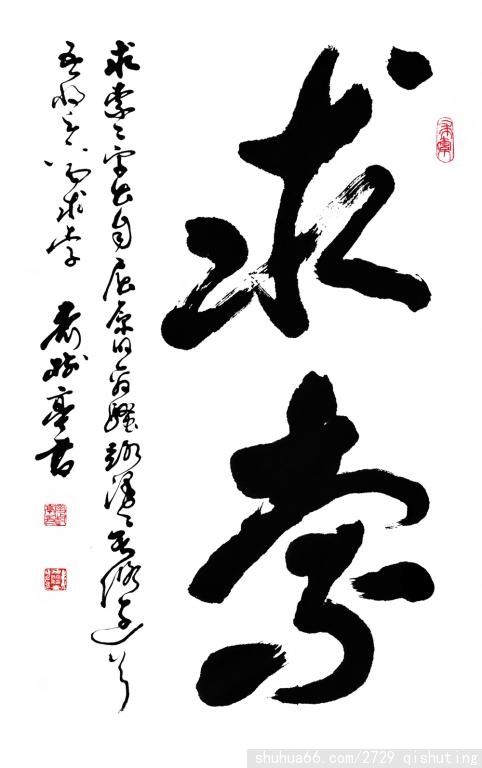 求索
求索二字出自屈原的离骚路漫漫其修远兮
吾将上下而求索
树亭书
shuhua66.com/2729 qishuting